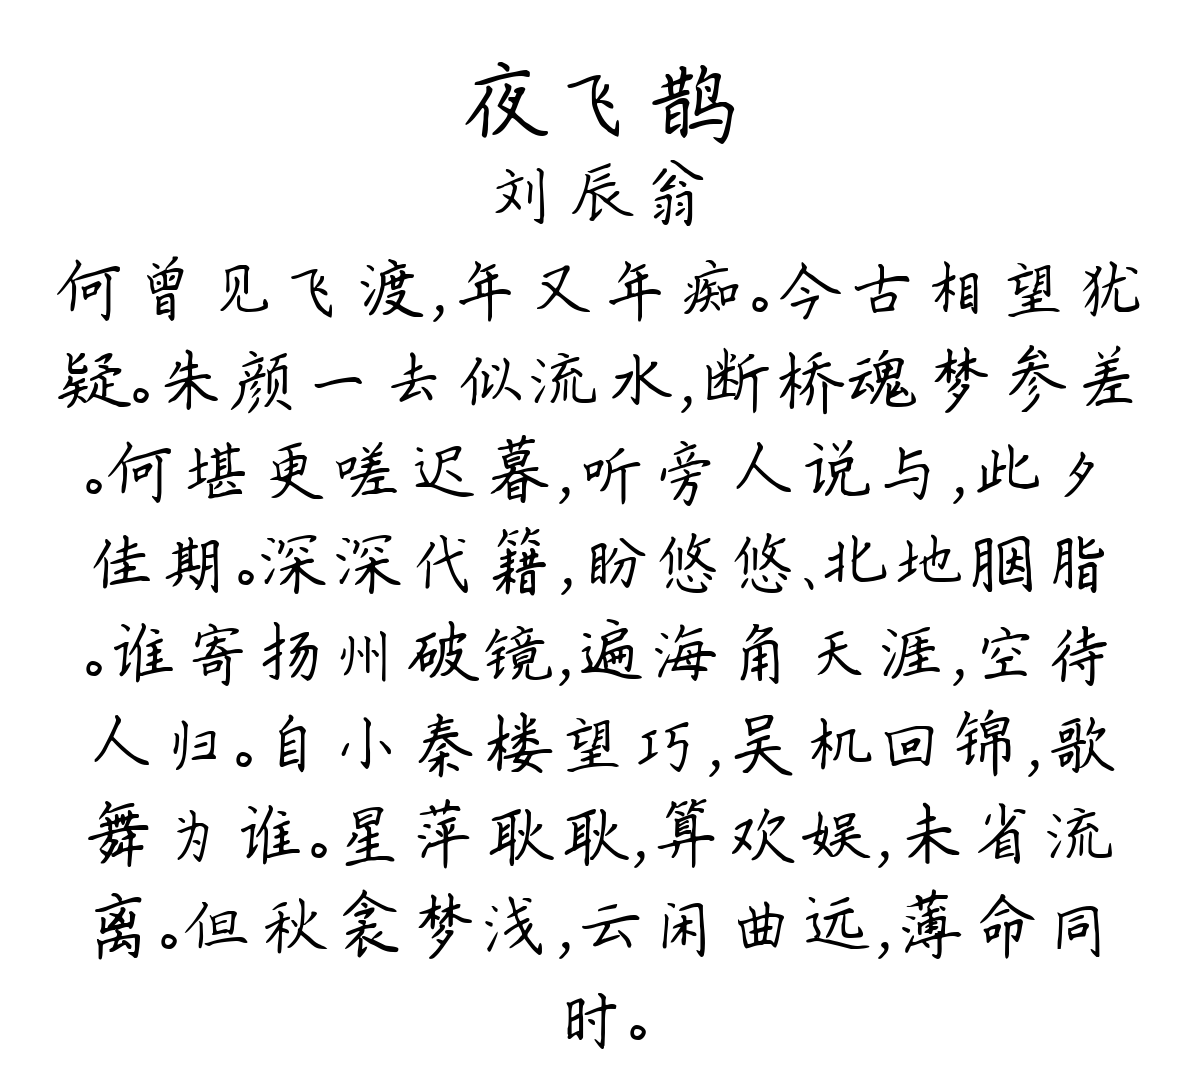 夜飞鹊
刘辰翁
何曾见飞渡,年又年痴。今古相望犹
疑。朱颜一去似流水,断桥魂梦参差
。何堪更嗟迟暮,听旁人说与,此夕
佳期。深深代籍,盼悠悠、北地胭脂
。谁寄扬州破镜,遍海角天涯,空待
人归。自小秦楼望巧,吴机回锦,歌
舞为谁。星萍耿耿,算欢娱,未省流
离。但秋衾梦浅,云闲曲远,薄命同
时。